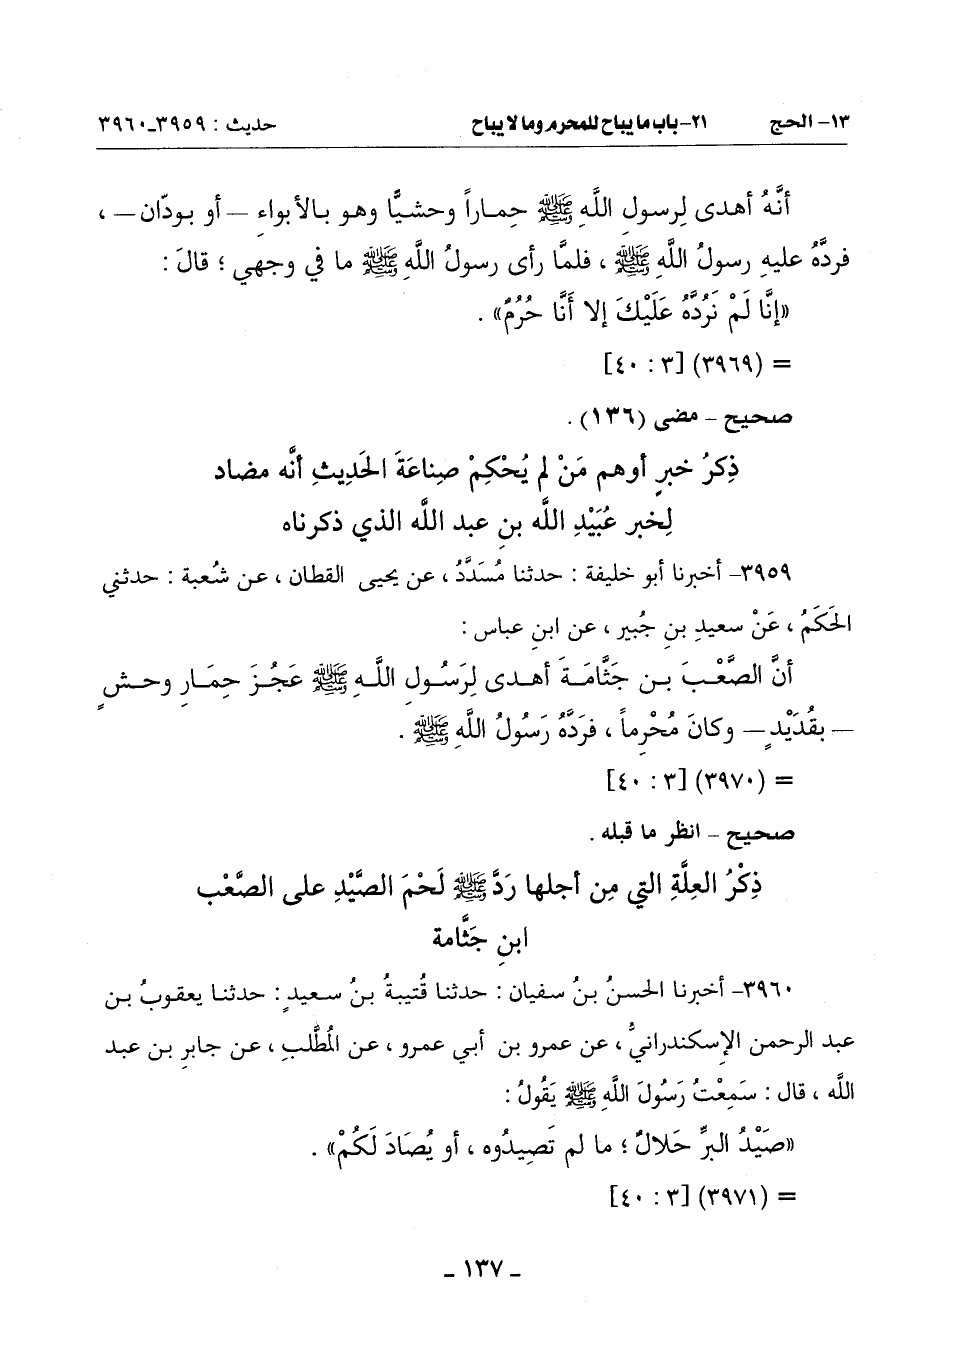 ١٣- الحج ٢١-باب ما يباح للمحرم وما لا يباح حديث : ٣٩٥٩-٣٩٦٠
أنَّهُ أهدى لِرسولِ اللَّهِ ﷺ حِماراً وحشيًّا وهو بالأبواءِ – أو بودّان – ،
فردَّهُ عليهِ رسولُ اللَّهِ ﷺ ، فلمَّا رأى رسولُ اللَّهِ ﷺ ما في وجهي ؛ قالَ :
«إنَّا لَمْ نَرُدَّهُ عَلَيْكَ إلا أَنَّا حُرُمٌ» .
= (٣٩٦٩) [٣ : ٤٠]
صحيح - مضى (١٣٦) .
ذِكرُ خبرٍ أوهم مَنْ لم يُحْكِمْ صِناعَةَ الحَدِيثِ أنَّه مضاد
لِخبر عُبَيْدِ اللَّه بنِ عبد اللَّه الذي ذكرناه
٣٩٥٩- أخبرنا أبو خليفة : حدثنا مُسَدَّدٌ ، عن يحيى القطان ، عن شُعبة : حدثني
الحَكَمُ ، عَنْ سعيدِ بنِ جُبير ، عن ابنِ عباس :
أنَّ الصَّعْبَ بن جَثَّامَةَ أهدى لِرَسُولِ اللَّهِ ﷺ عَجُزَ حِمَارِ وحشٍ
– بقُدَيْدٍ – وكانَ مُحْرِماً ، فرَدَّهُ رَسُولُ اللَّهِ ﷺ .
= (٣٩٧٠) [٣ : ٤٠]
صحيح - انظر ما قبله .
ذِكْرُ العِلَّةِ التي مِن أجلها رَدَّ ﷺ لَحْمَ الصَّيْدِ على الصَّعْب
ابنِ جَثَّامة
٣٩٦٠- أخبرنا الحسنُ بنُ سفيان : حدثنا قُتيبةُ بنُ سعيدٍ : حدثنا يعقوبُ بن
عبد الرحمن الإسكندرانيُّ ، عن عمرو بن أبي عمرو ، عن المُطَّلبِ ، عن جابرِ بن عبد
اللَّه ، قال : سَمِعْتُ رَسُولَ اللَّهِ ﷺ يَقُولُ :
«صَيْدُ البرِّ حَلالٌ ؛ ما لم تَصِيدُوه ، أو يُصَادَ لَكُمْ» .
= (٣٩٧١) [٣ : ٤٠]
- ١٣٧ -